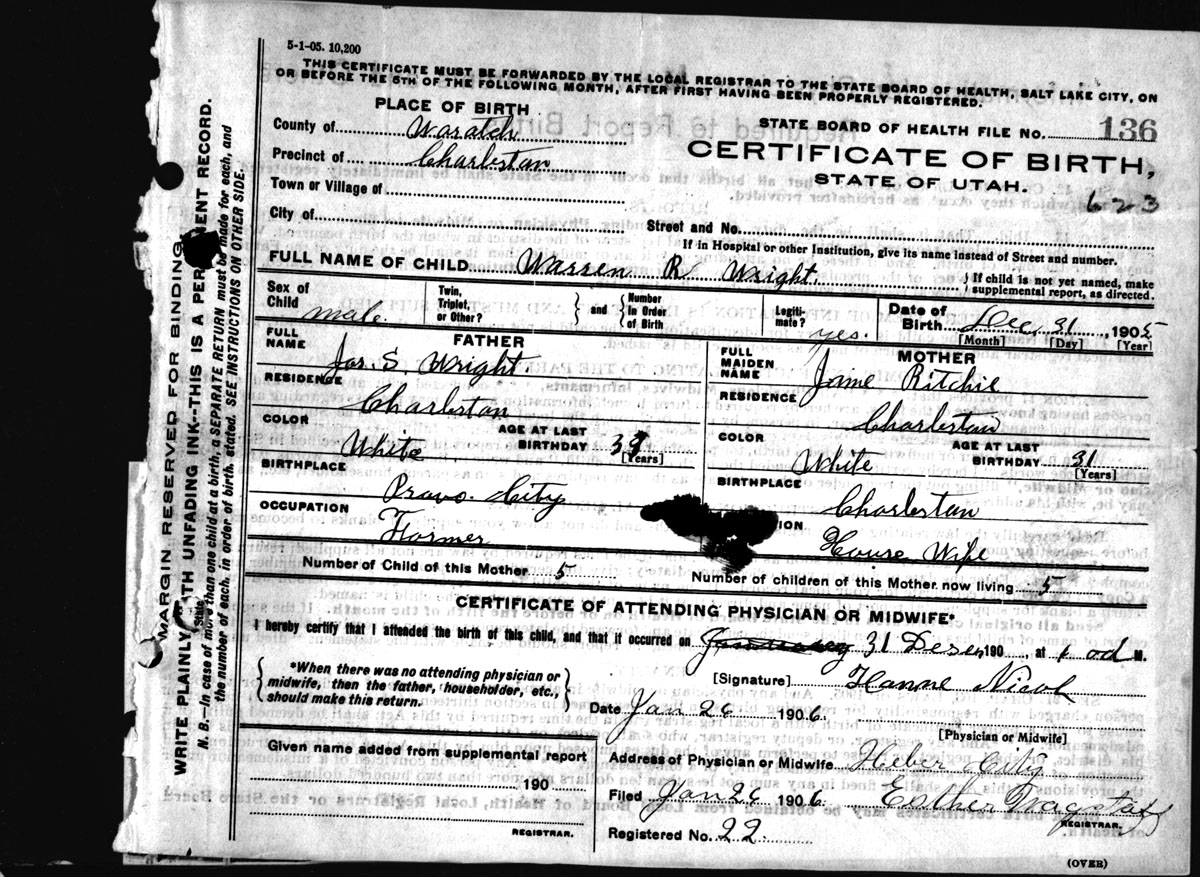 5-1-05. 10,200
THIS CERTIFICATE MUST BE FORWARDED BY THE LOCAL REGISTRAR TO THE STATE BOARD OF HEALTH, SALT LAKE CITY, ON
OR BEFORE THE 5TH OF THE FOLLOWING MONTH, AFTER FIRST HAVING BEEN PROPERLY REGISTERED.
PLACE OF BIRTH
County of Wasatch
Precinct of Charleston
Town or Village of
City of
STATE BOARD OF HEALTH FILE NO. 136
CERTIFICATE OF BIRTH,
STATE OF UTAH.
623
Street and No.
If in Hospital or other Institution, give its name instead of Street and number.
FULL NAME OF CHILD Warren R Wright
If child is not yet named, make
supplemental report, as directed.
Sex of Child male
Twin, Triplet, or Other?
and
Number in Order of Birth
Legiti- mate? yes.
Date of Birth Dec. 31, 1905
[Month] [Day] [Year]
FATHER
FULL NAME Jos. S. Wright
RESIDENCE Charleston
COLOR White
AGE AT LAST BIRTHDAY
[Years]
BIRTHPLACE Provo City
OCCUPATION Farmer
MOTHER
FULL MAIDEN NAME Jane Ritchie
RESIDENCE Charleston
COLOR White
AGE AT LAST BIRTHDAY 31
[Years]
BIRTHPLACE Charleston
ION House Wife
Number of Child of this Mother 5
Number of children of this Mother now living 5
CERTIFICATE OF ATTENDING PHYSICIAN OR MIDWIFE*
I hereby certify that I attended the birth of this child, and that it occurred on 31 Desem 190 , at M.
*When there was no attending physician or
midwife, then the father, householder, etc.,
should make this return.
[Signature] Hanne Nicol
Date Jan 26 1906.
[Physician or Midwife]
Given name added from supplemental report
190
REGISTRAR.
Address of Physician or Midwife Heber City
Filed Jan 26 1906. Esther Wagstaff
REGISTRAR.
Registered No. 22.
(OVER)
MARGIN RESERVED FOR BINDING
WRITE PLAINLY WITH UNFADING INK--THIS IS A PERMANENT RECORD.
N. B.--In case of more than one child at a birth, a SEPARATE RETURN must be made for each, and
the number of each, in order of birth, stated. SEE INSTRUCTIONS ON OTHER SIDE.